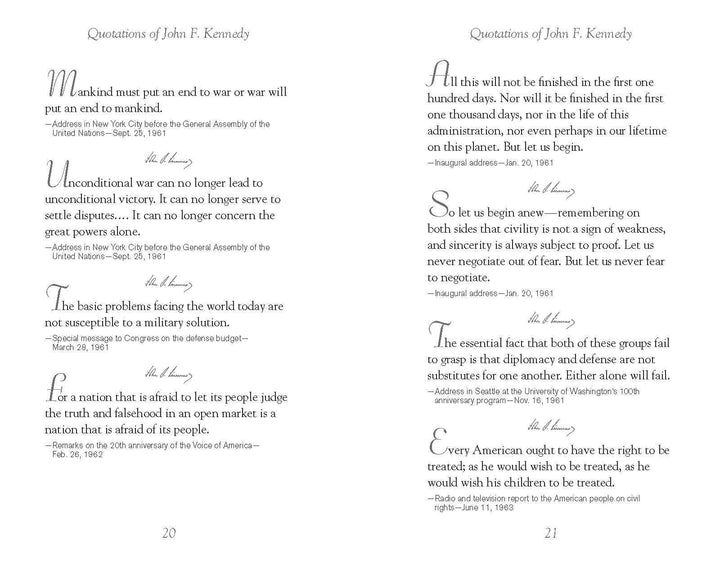 Quotations of John F. Kennedy
Mankind must put an end to war or war will
put an end to mankind.
—Address in New York City before the General Assembly of the
United Nations—Sept. 25, 1961
Unconditional war can no longer lead to
unconditional victory. It can no longer serve to
settle disputes.... It can no longer concern the
great powers alone.
—Address in New York City before the General Assembly of the
United Nations—Sept. 25, 1961
The basic problems facing the world today are
not susceptible to a military solution.
—Special message to Congress on the defense budget—
March 28, 1961
For a nation that is afraid to let its people judge
the truth and falsehood in an open market is a
nation that is afraid of its people.
—Remarks on the 20th anniversary of the Voice of America—
Feb. 26, 1962
20
Quotations of John F. Kennedy
All this will not be finished in the first one
hundred days. Nor will it be finished in the first
one thousand days, nor in the life of this
administration, nor even perhaps in our lifetime
on this planet. But let us begin.
—Inaugural address—Jan. 20, 1961
So let us begin anew—remembering on
both sides that civility is not a sign of weakness,
and sincerity is always subject to proof. Let us
never negotiate out of fear. But let us never fear
to negotiate.
—Inaugural address—Jan. 20, 1961
The essential fact that both of these groups fail
to grasp is that diplomacy and defense are not
substitutes for one another. Either alone will fail.
—Address in Seattle at the University of Washington's 100th
anniversary program—Nov. 16, 1961
Every American ought to have the right to be
treated; as he would wish to be treated, as he
would wish his children to be treated.
—Radio and television report to the American people on civil
rights—June 11, 1963
21